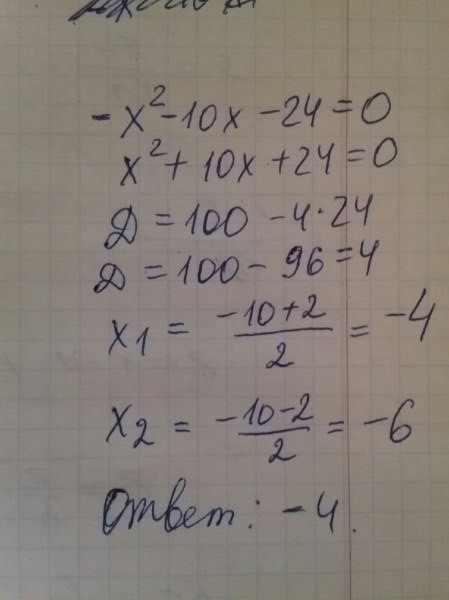 -x²-10x-24=0
x²+10x+24=0
D=100-4·24
D=100-96=4
x1 = (-10+2)/2 = -4
x2 = (-10-2)/2 = -6
Ответ: -4.